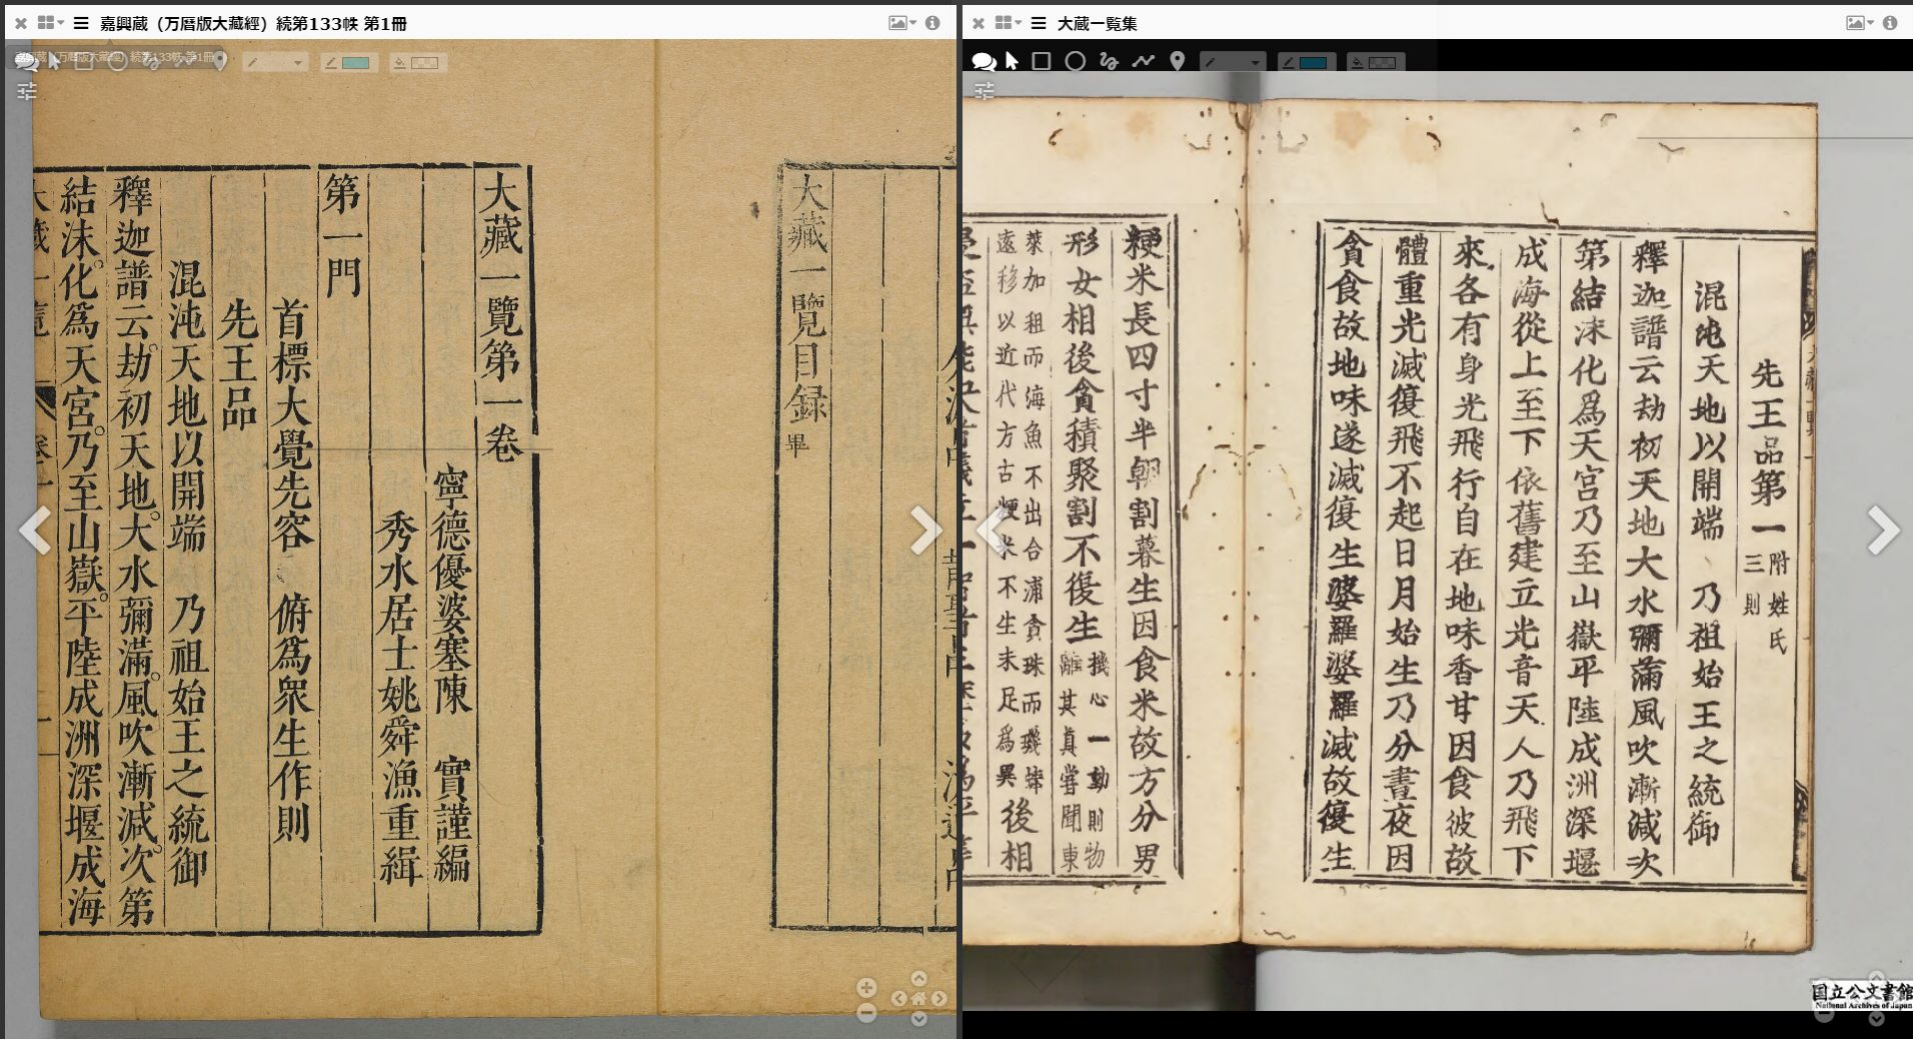 嘉興蔵（万暦版大藏經）続第133帙 第1冊
大蔵一覧集
嘉興蔵（万暦版大藏經）続第133帙 第1冊
大藏一覽目録畢
大藏一覽第一卷
寧德優婆塞陳　實謹編
秀水居士姚舜漁重緝
第一門
首標大覺先容　俯爲衆生作則
先王品
混沌天地以開端　乃祖始王之統御
釋迦譜云。劫初天地。大水彌滿。風吹漸減。次第
結沫。化爲天宮。乃至山嶽。平陸成洲深堰成海
大藏一覽
先王品第一附姓氏三則
混沌天地以開端　乃祖始王之統御
釋迦譜云劫初天地大水彌滿風吹漸減次
第結沫化爲天宮乃至山嶽平陸成洲深堰
成海從上至下依舊建立光音天人乃飛下
來各有身光飛行自在地味香甘因食彼故
體重光滅復飛不起日月始生乃分晝夜因
貪食故地味遂滅復生婆羅婆羅滅故復生
粳米長四寸半朝割暮生因食米故方分男
形女相後貪積聚割不復生機心一動則物離其真嘗聞東
萊加租而海魚不出合浦貪珠而璣蚌遠移以近代方古粳米不生未足爲異後相
国立公文書館
National Archives of Japan